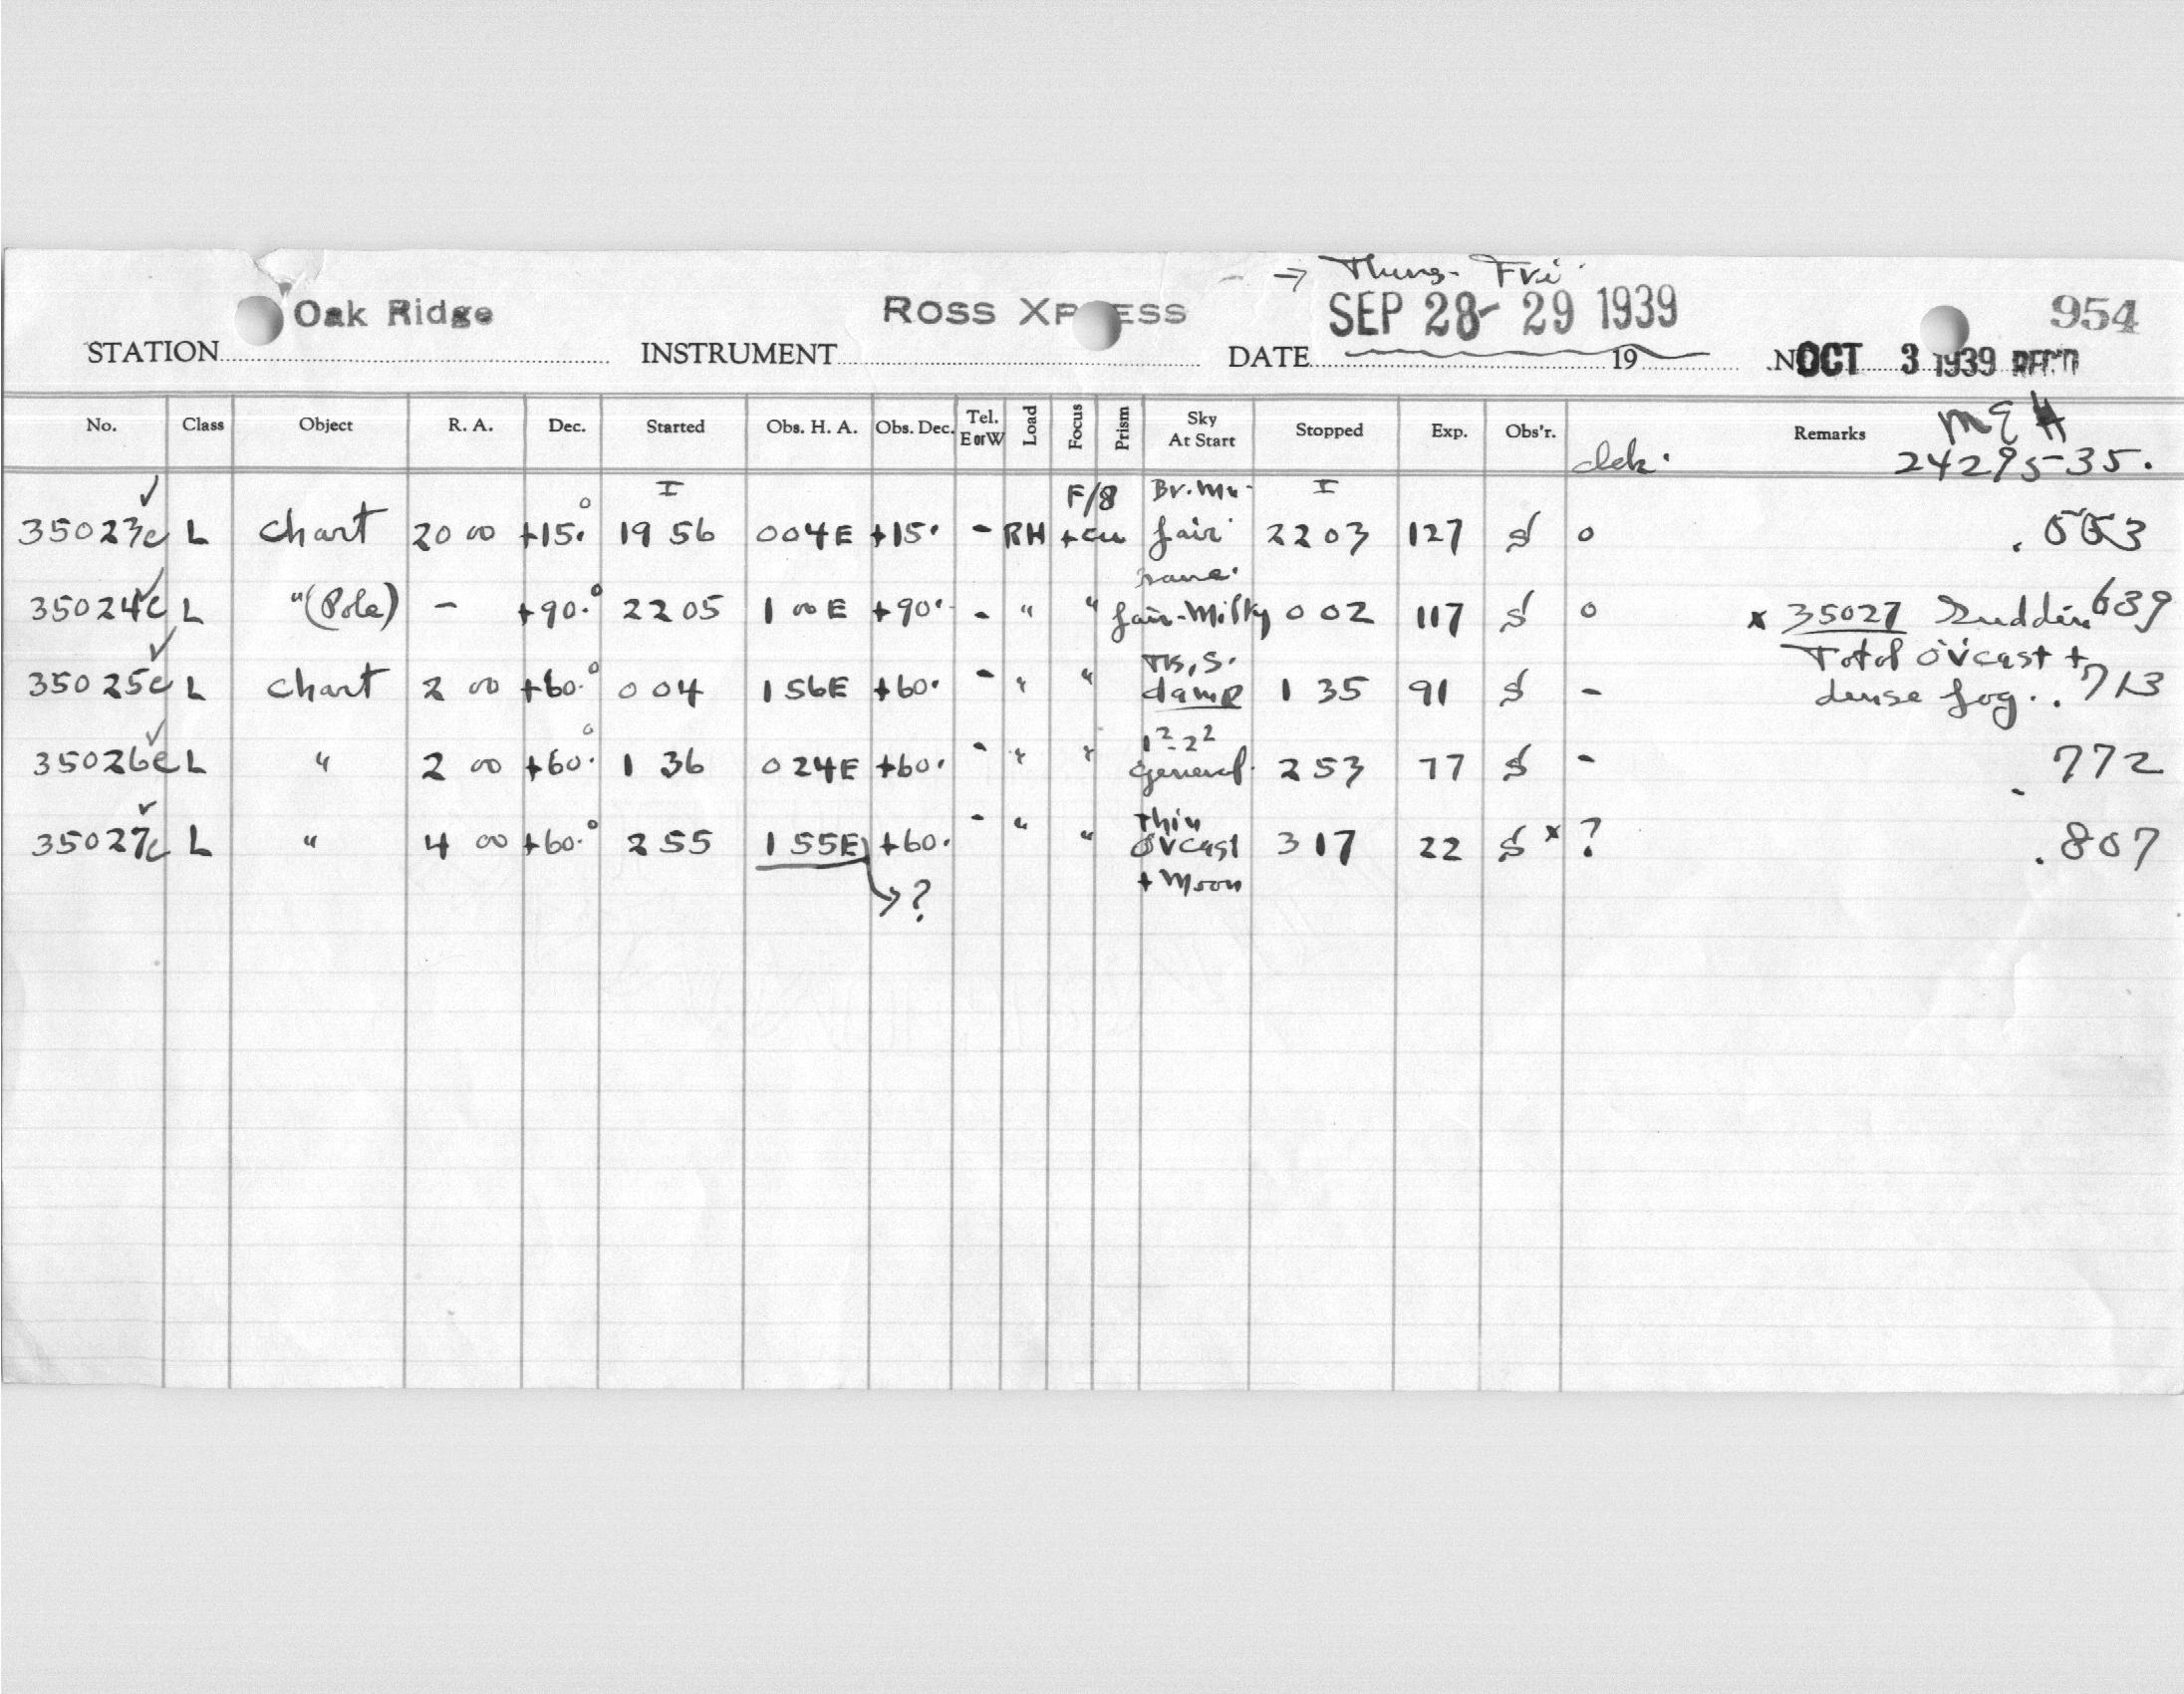 → Thurs- Fri
Oak Ridge ROSS XPRESS SEP 28- 29 1939 954
STATION INSTRUMENT DATE 19 N OCT 3 1939 REC'D
No. Class Object R. A. Dec. Started Obs. H. A. Obs. Dec. Tel. E or W Load Focus Prism Sky At Start Stopped Exp. Obs'r. clck. Remarks
24295 35.
I F/8 I
35023c L Chart 20 00 +15.° 19 56 004E +15. - RH +cu fair 2203 127 S o .553
35024c L "(Pole) - +90.° 2205 1 00E +90. - " " fair-Milky 002 117 S o x 35027 Sudden 639
Total ovcast +
35025c L Chart 2 00 +60.° 0 04 156E +60. - " " damp 1 35 91 S - dense fog. .713
1²-2²
35026c L " 2 00 +60.° 1 36 024E +60. - " " general 253 77 S - .772
35027c L " 4 00 +60.° 2 55 155E +60. - " " thin ovcast + Moon 3 17 22 S x ? .807
→ ?